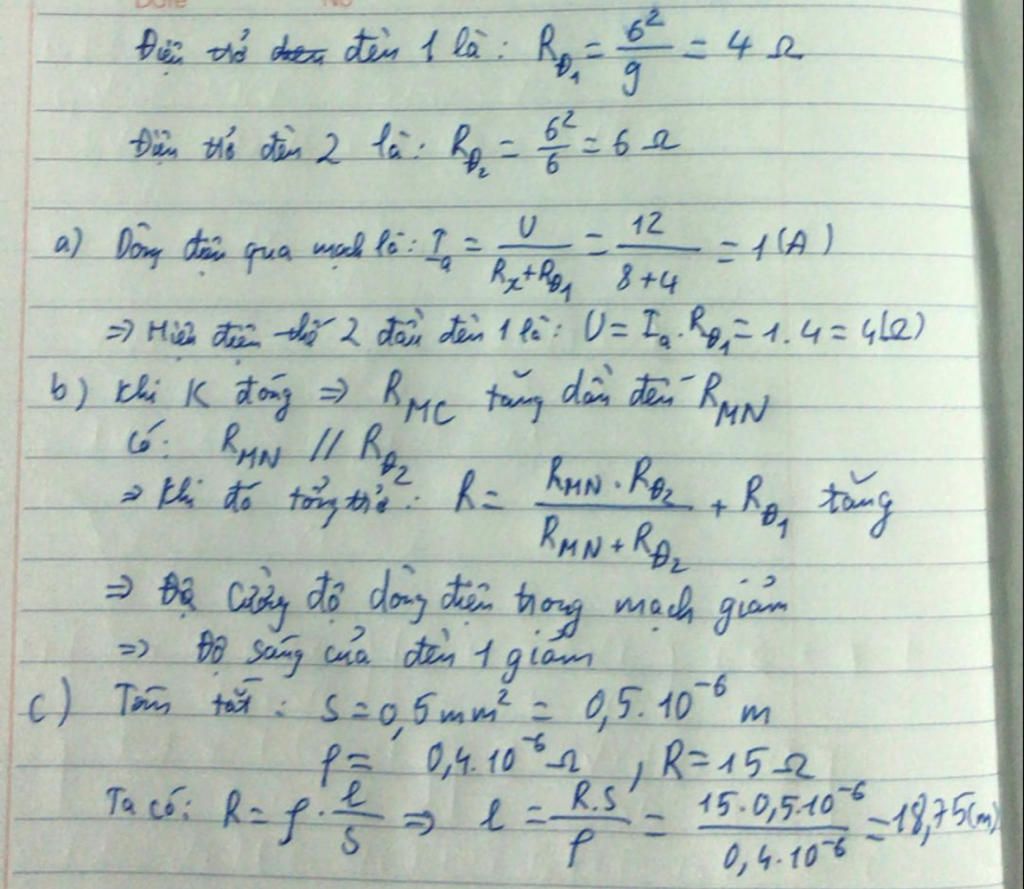 Date No
Điện trở đèn 1 là: R_Đ1 = 6²/9 = 4 Ω
Điện trở đèn 2 là: R_Đ2 = 6²/6 = 6 Ω
a) Dòng điện qua mạch là: I_a = U/(R_x+R_Đ1) = 12/(8+4) = 1(A)
⇒ Hiệu điện thế 2 đầu đèn 1 là: U = I_a.R_Đ1 = 1.4 = 4(Ω)
b) Khi K đóng ⇒ R_MC tăng dần đến R_MN
Có: R_MN // R_Đ2
⇒ Khi đó tổng trở: R = (R_MN.R_Đ2)/(R_MN+R_Đ2) + R_Đ1 tăng
⇒ Cường độ dòng điện trong mạch giảm
⇒ Độ sáng của đèn 1 giảm
c) Tóm tắt: S = 0,5mm² = 0,5.10⁻⁶ m
ρ = 0,4.10⁻⁶ Ω, R = 15 Ω
Ta có: R = ρ.l/S ⇒ l = R.S/ρ = (15.0,5.10⁻⁶)/(0,4.10⁻⁶) = 18,75(m)